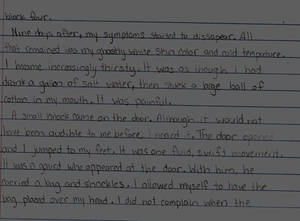 block four.
Nine days after, my symptoms started to dissapear. All
that remained was my ghostly white skin color and mid temperature.
I became increasingly thirsty. It was as though I had
drank a galon of salt water, then stuck a large ball of
cotton in my mouth. It was painful.
A small knock came on the door. Although it would not
have been audible to me before, I heard it. The door opened
and I jumped to my feet. It was one fluid, swift movement.
It was a gaurd who appeared at the door. With him, he
carried a bag and shackles. I allowed myself to have the
bag placed over my head. I did not complain when the